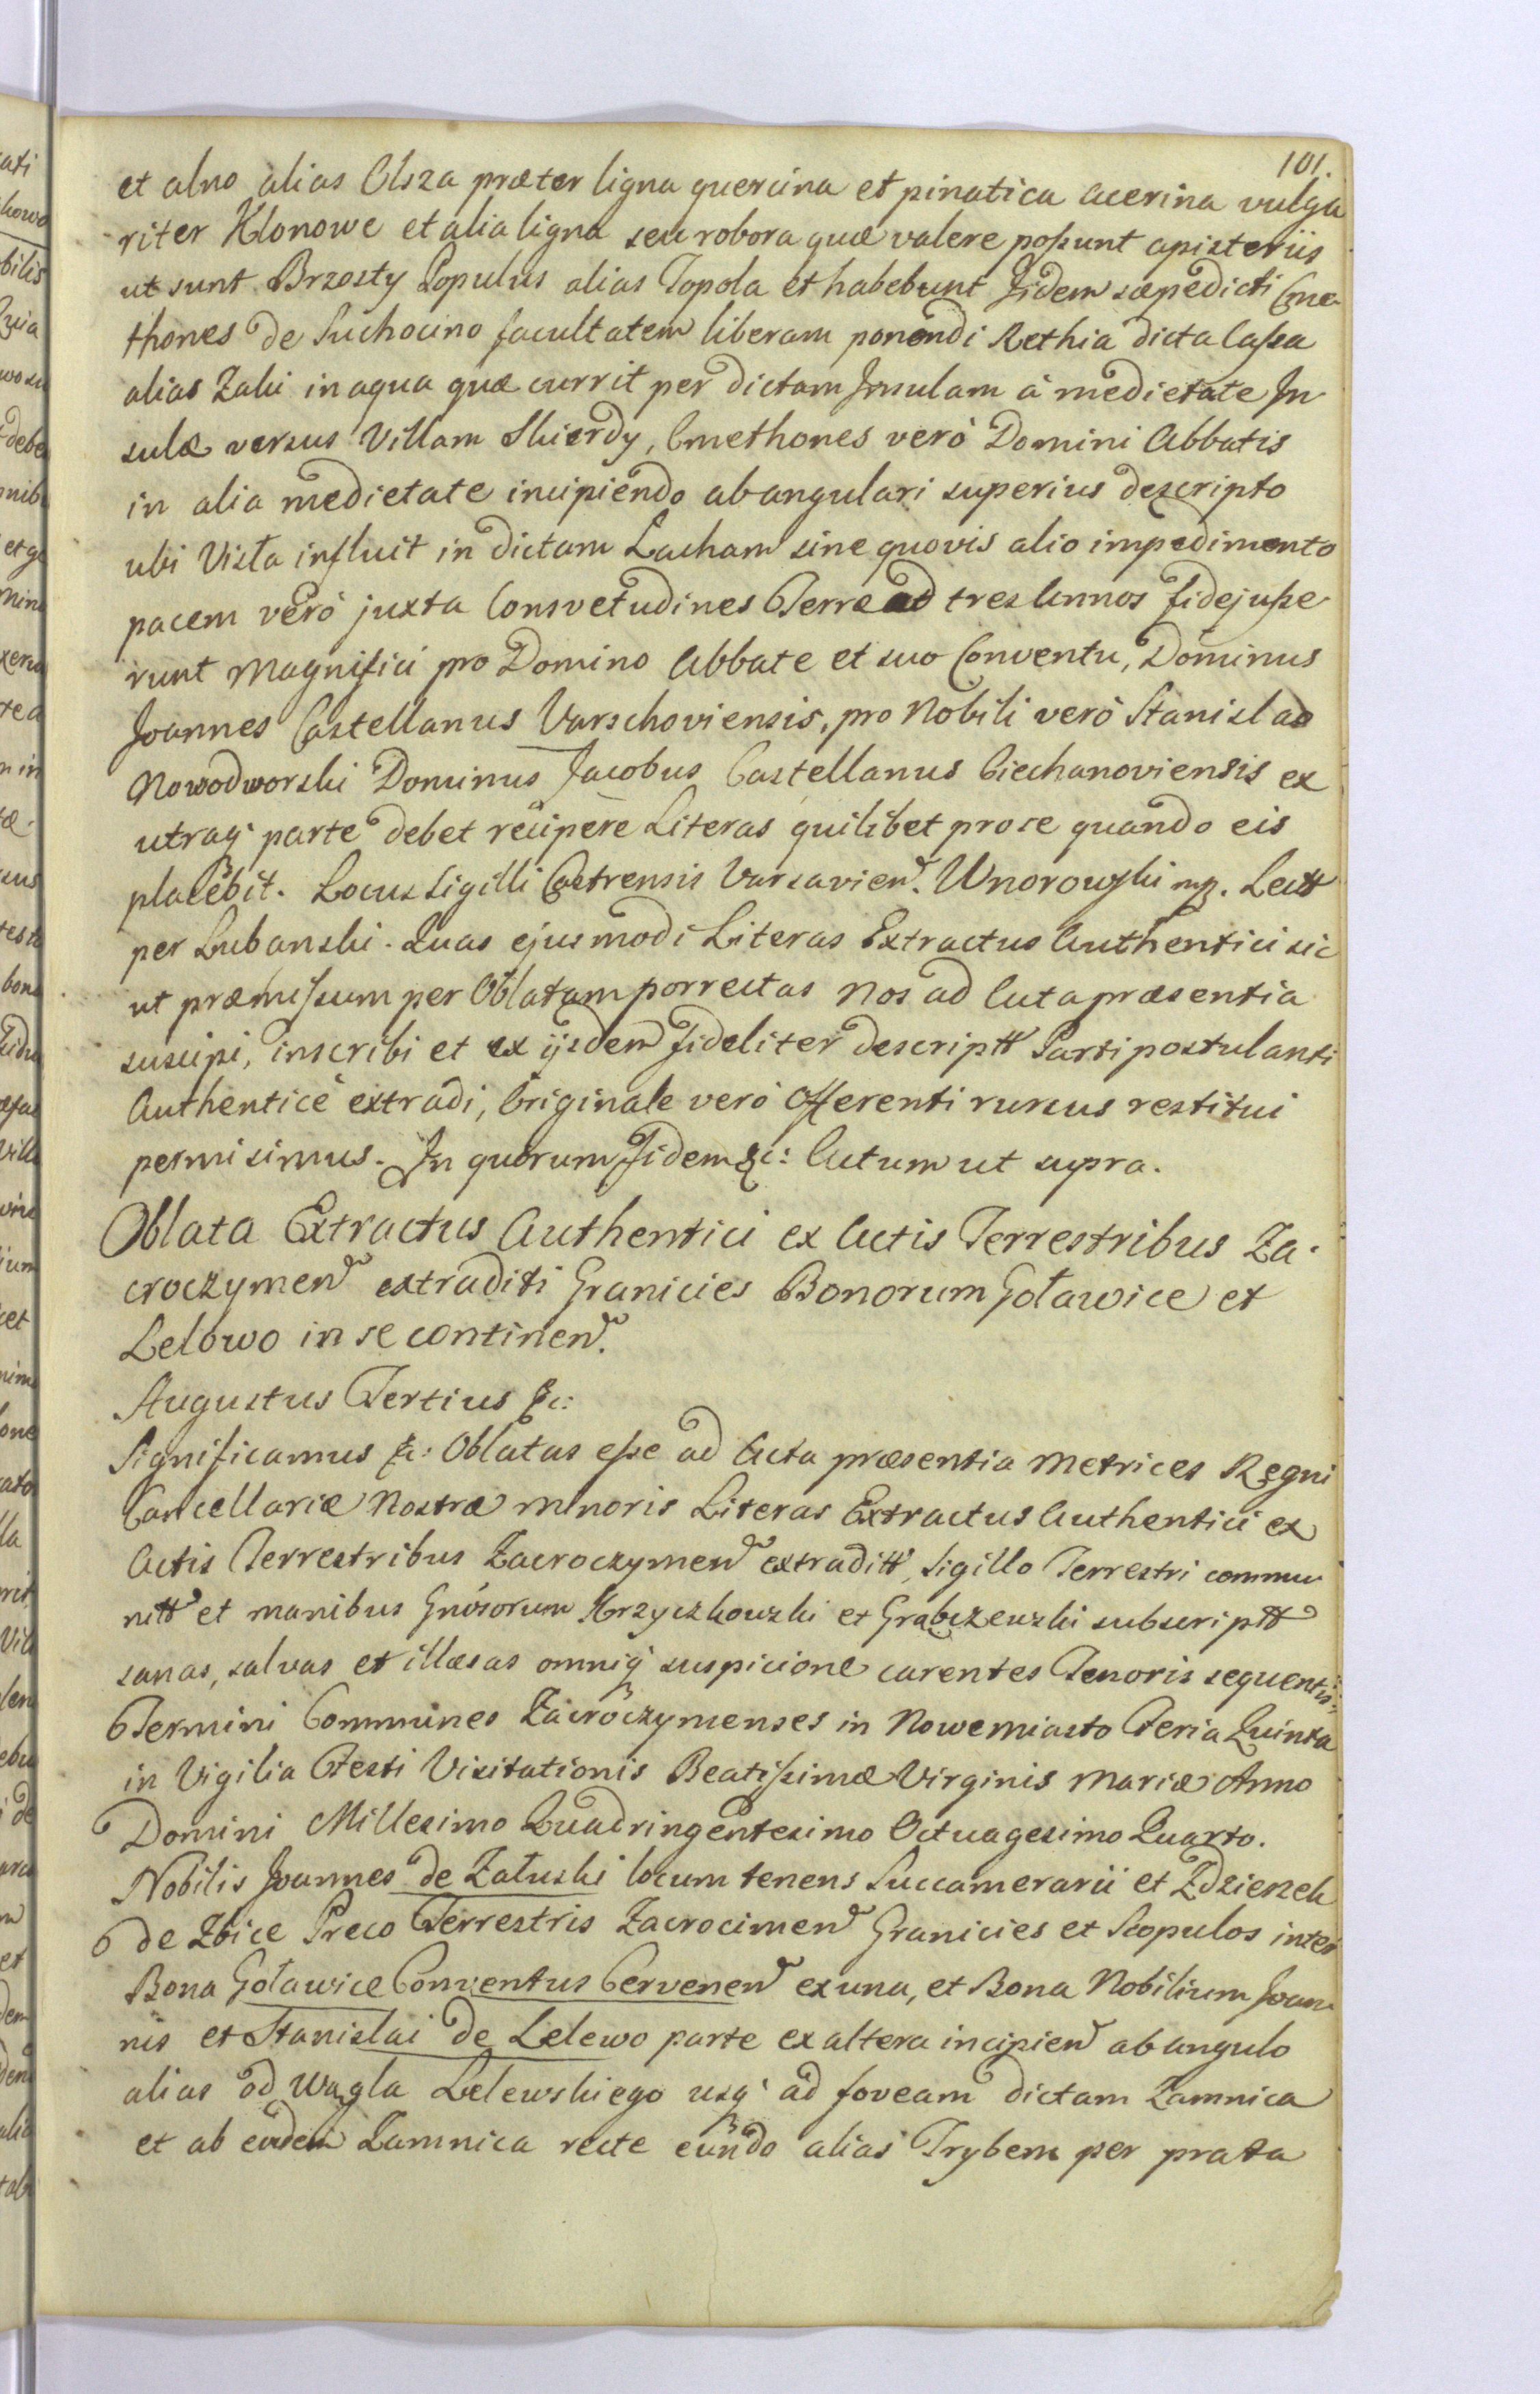 101.
et alno alias Olsza præter ligna quercina et pinatica acerina vulga
riter Klonowe et alia ligna seu robora quæ valere possunt apisteriis
ut sunt Brzosty Populus alias Topola et habebunt Iidem sæpedicti Cme-
thones de Suchocino facultatem liberam ponendi Rethia dicta Cassa
alias Zaki in aqua quæ currit per dictam Insulam à medietate In
sulæ versus Villam Skierdy, Cmethones verò Domini Abbatis
in alia medietate incipiendo ab angulari superius descripto
ubi Visła influit in dictam Lacham sine quovis alio impedimento
pacem verò juxta Consvetudines Terræ ad tres Annos fidejusse-
runt Magnifici pro Domino Abbate et suo Conventu, Dominus
Joannes Castellanus Varschoviensis, pro Nobili verò Stanislao
Nowodworski Dominus Jacobus Castellanus Ciechanoviensis ex
utraq; parte debet recipere Literas quilibet pro se quando eis
placebit. Locus Sigilli Castrensis Varsavien. Wnorowski mp. Lectt
per Lubanski. Quas ejusmodi Literas Extractus Authentici sic
ut præmissum per Oblatam porrectas Nos ad Acta præsentia
suscipi, inscribi et ex ijsdem fideliter descriptt Parti postulanti
Authenticè extradi, Originale verò Offerenti rursus restitui
permisimus. In quorum Fidem &c: Actum ut supra.
Oblata Extractus Authentici ex Actis Terrestribus Za-
croczymen extraditi Granicies Bonorum Goławice et
Lelowo in se continen.
Augustus Tertius &c:
Significamus &c: Oblatas esse ad Acta præsentia Metrices Regni
Cancellariæ Nostræ Minoris Literas Extractus Authentici ex
Actis Terrestribus Zacroczymen extraditt, Sigillo Terrestri commu
nitt et manibus Gnosorum Krzyczkowski et Grabczewski subscriptt
sanas, salvas et illæsas omniq; suspicione carentes Tenoris sequentis:
Termini Communes Zacroczymenses in Nowemiasto Feria Quinta
in Vigilia Festi Visitationis Beatissimæ Virginis Mariæ Anno
Domini Millesimo Quadringentesimo Octuagesimo Quarto.
Nobilis Joannes de Załuski locum tenens Succamerarii et Zdzieszek
de Zbice Preco Terrestris Zacrocimen Granicies et Scopulos inter
Bona Goławice Conventus Cervenen ex una, et Bona Nobilium Joan
nis et Stanislai de Lelewo parte ex altera incipien ab angulo
alias od Wągla Lelewskiego usq; ad foveam dictam Zamnica
et ab eadem Zamnica recte eundo alias Trybem per prata